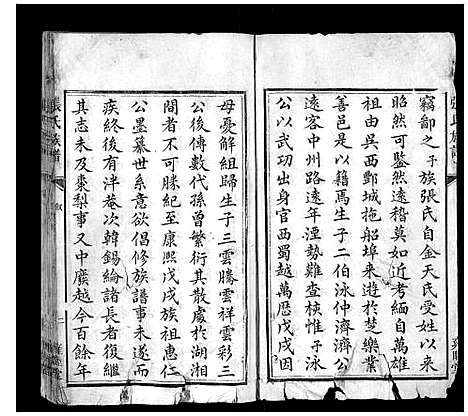 竊鄙之子族張氏自金天氏受姓以來
昭然可鑒然遠稽莫如近考緬自萬雄
祖由吳西鄷城拖船埠來遊於楚樂業
善邑是以籍焉生子二伯泳仲濟濟公
遠客中州路遠年湮勢難查核惟子泳
公以武功出身官西蜀越萬歷戊戌因
母憂解組歸生子三雲騰雲祥雲彩三
公後傳數代孫曾繁衍其散處於湖湘
間者不可勝紀至康熙戊戌族祖惠仁
公墨纂世系意欲倡修族譜事未遂而
疾終後有泮菴次韓錫綸諸長者復繼
其志未及棗梨事又中廢越今百餘年
張氏族譜
敘